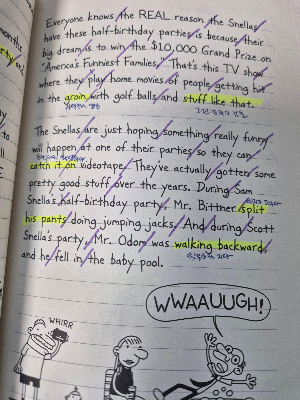 Everyone knows the REAL reason the Snellas
have these half-birthday parties is because their
big dream is to win the $10,000 Grand Prize on
"America's Funniest Families." That's this TV show
where they play home movies of people getting hit
in the groin with golf balls and stuff like that.
The Snellas are just hoping something really funny
will happen at one of their parties so they can
catch it on videotape. They've actually gotten some
pretty good stuff over the years. During Sam
Snella's half-birthday party, Mr. Bittner split
his pants doing jumping jacks. And during Scott
Snella's party, Mr. Odom was walking backward,
and he fell in the baby pool.
WWAAUUGH!
WHIRR